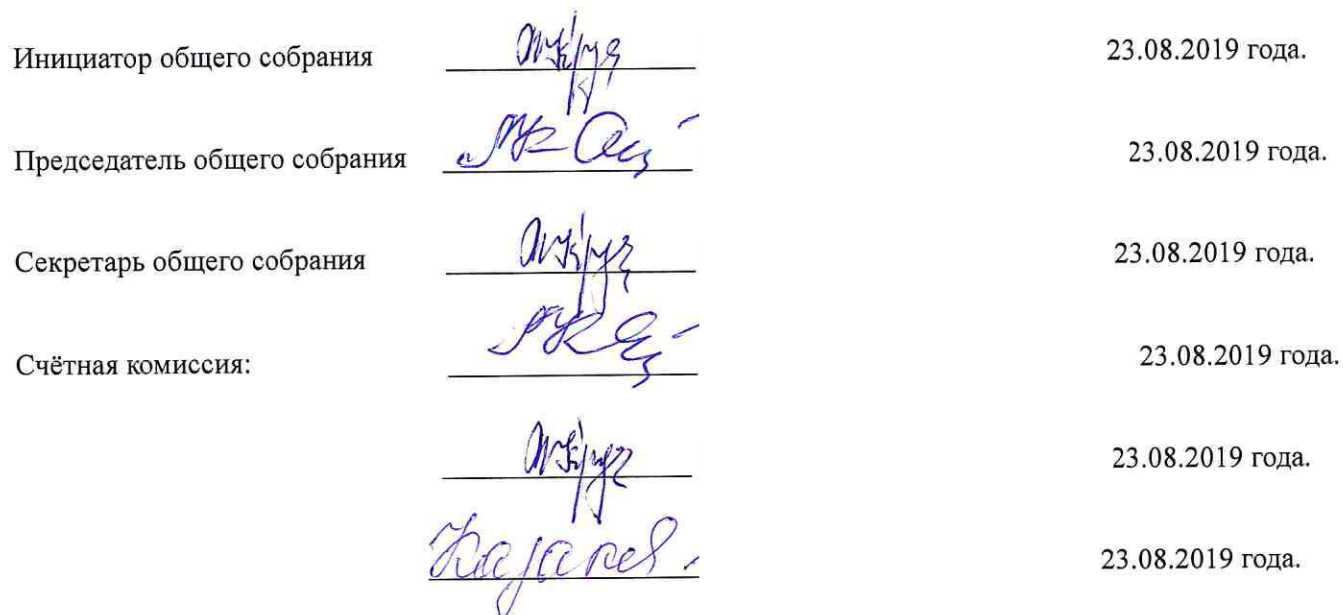 Инициатор общего собрания 23.08.2019 года.
Председатель общего собрания 23.08.2019 года.
Секретарь общего собрания 23.08.2019 года.
Счётная комиссия: 23.08.2019 года.
23.08.2019 года.
23.08.2019 года.